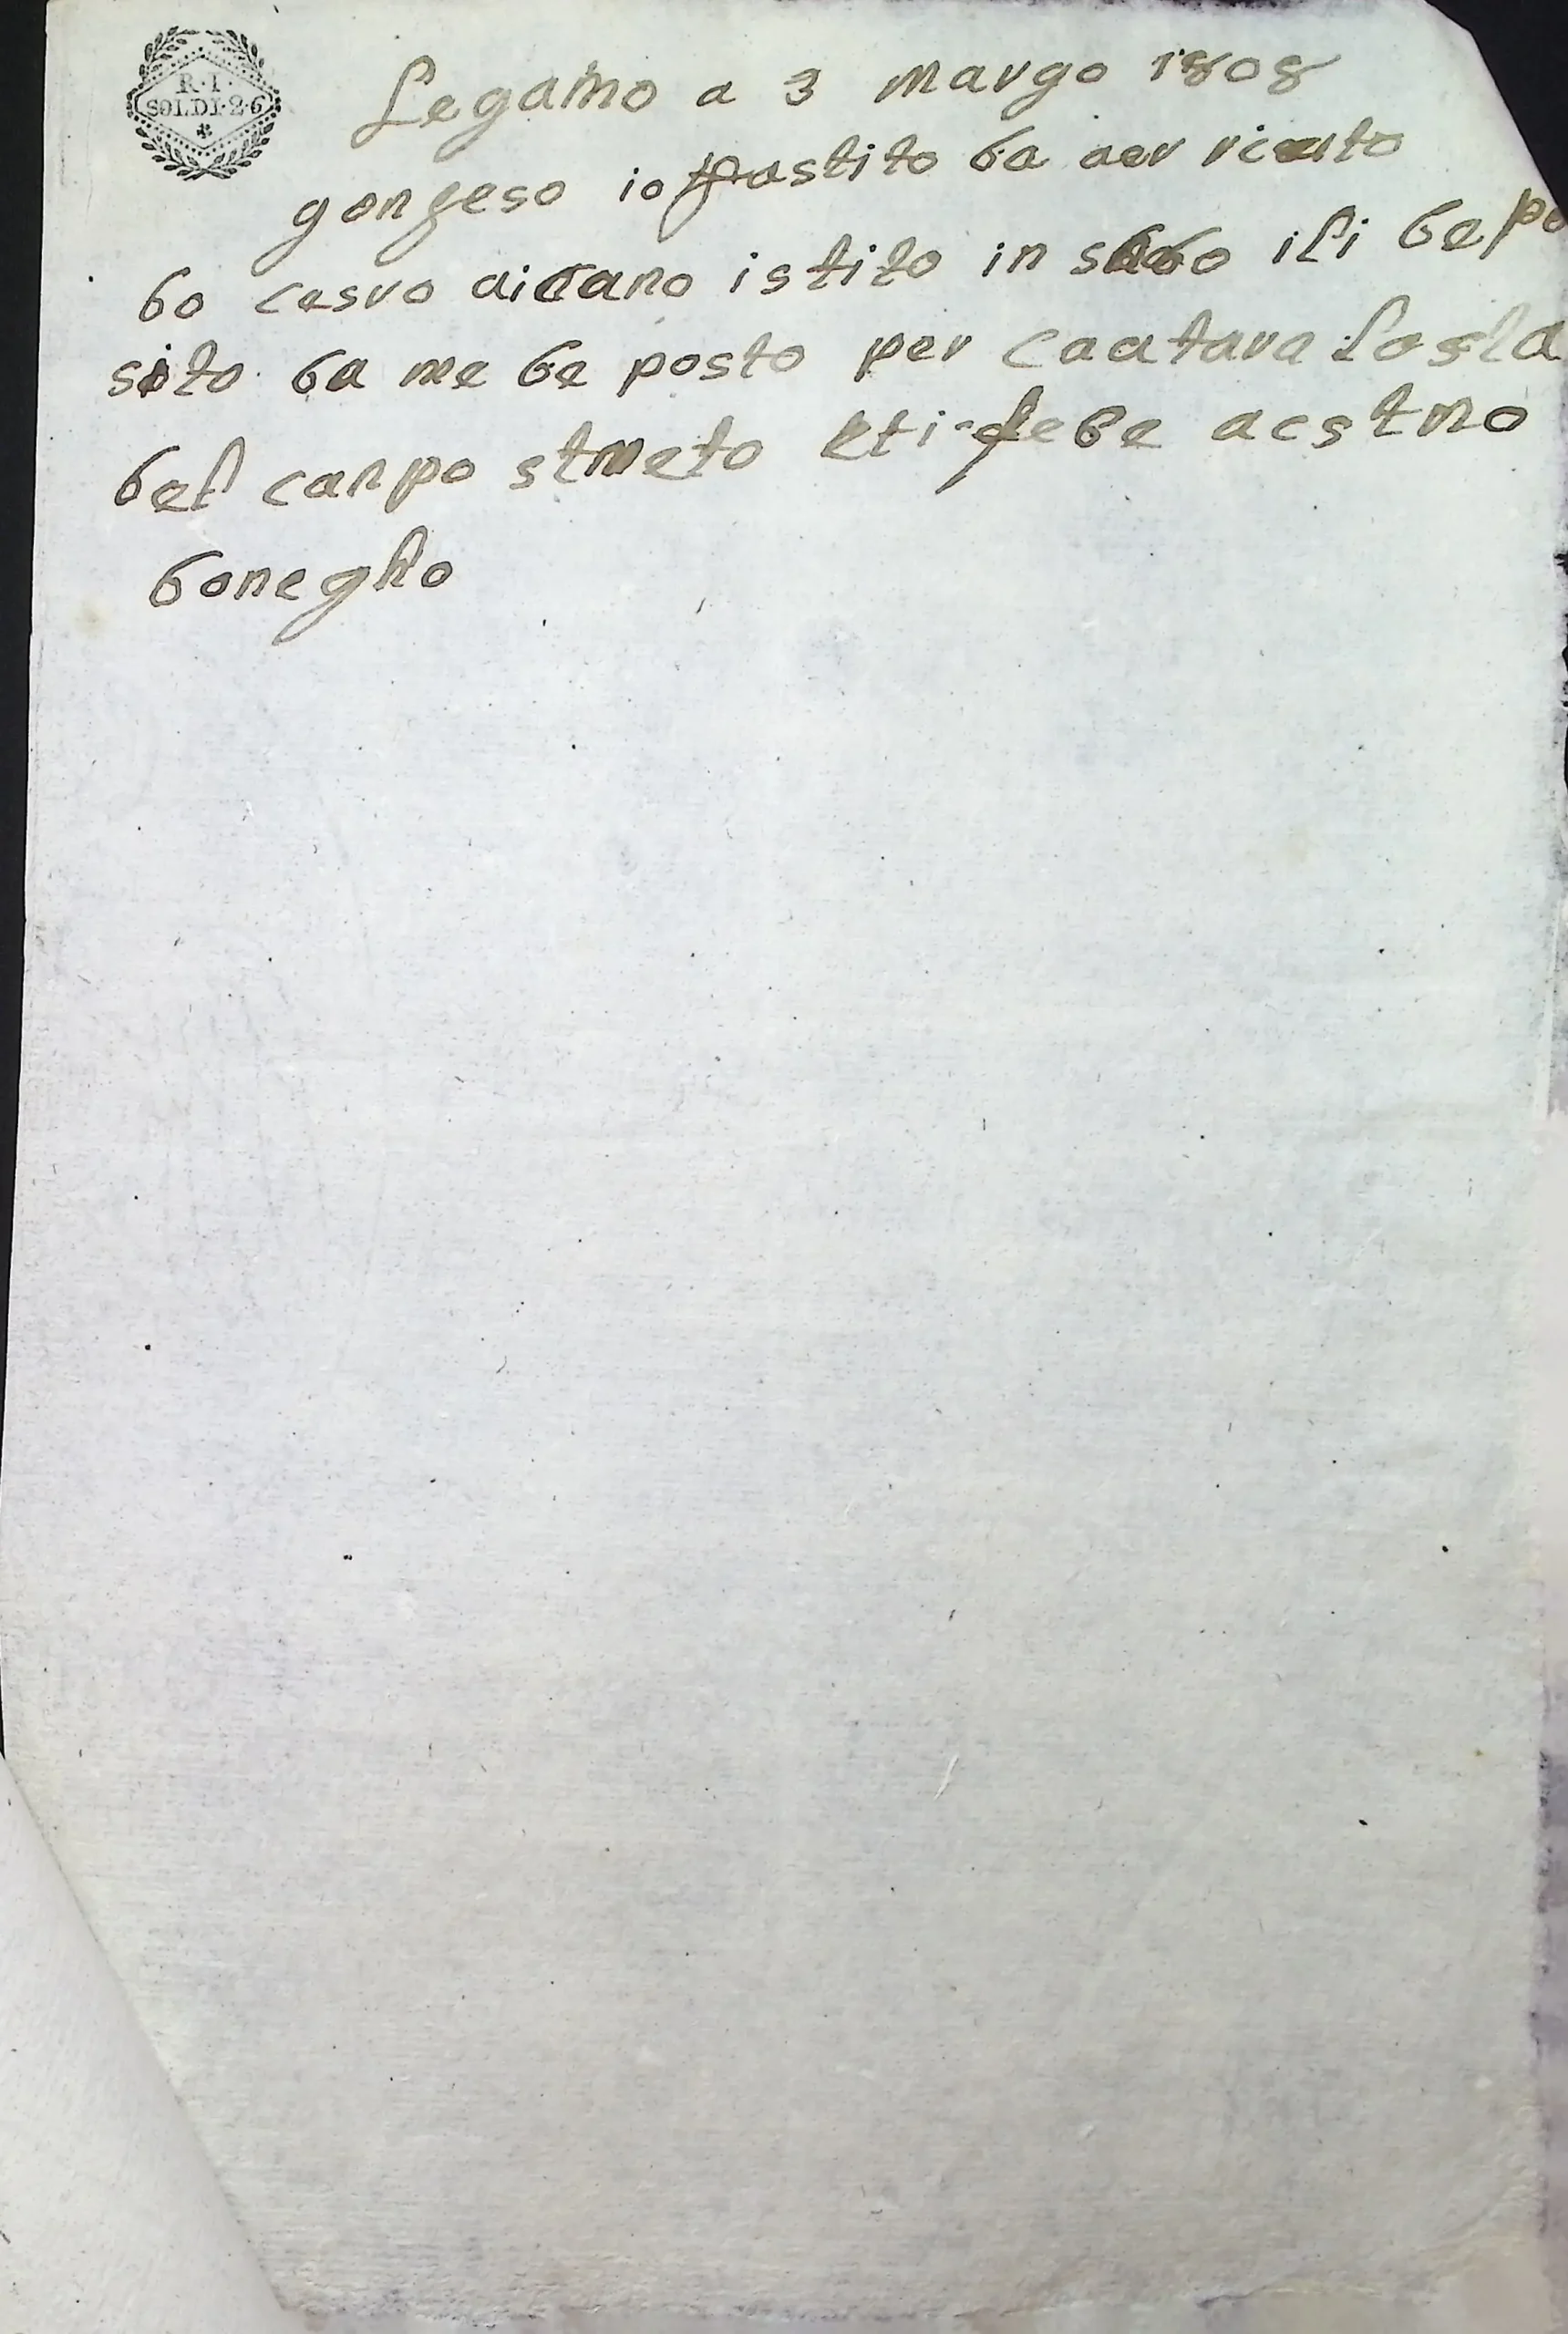 R. I.
SOLDI·2·6
Legaino a 3 margo 1808
gongeso io fastito da aer riceuto
do casro aicano istito in sado ili depo
sito da me de posto per caatara Lasla
del canpo stmeto eti fede acstmo
doneglio